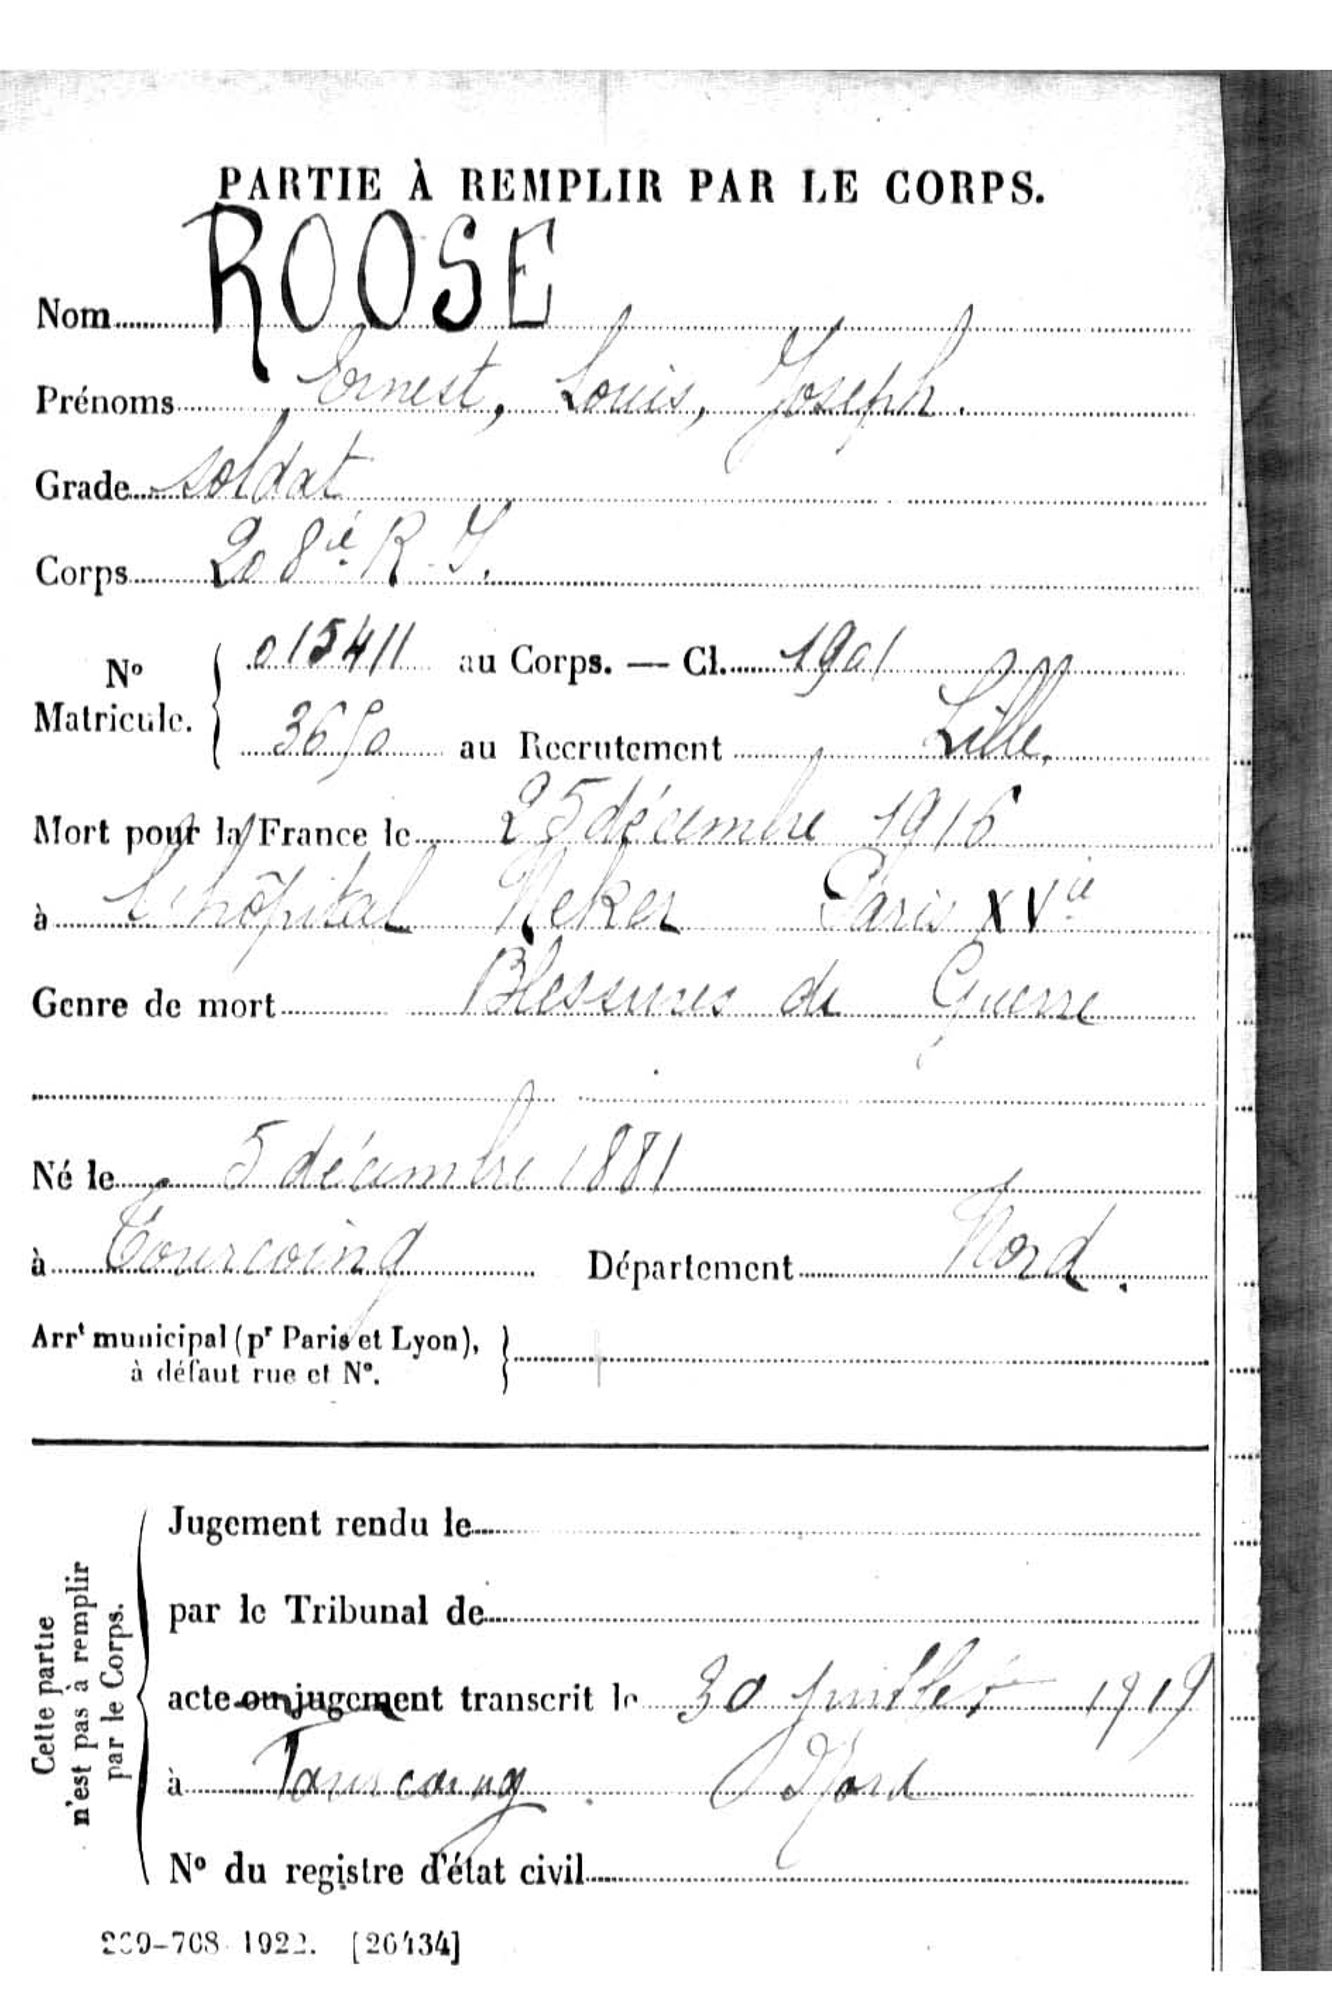 PARTIE À REMPLIR PAR LE CORPS.
Nom ROOSE
Prénoms Ernest, Louis, Joseph.
Grade soldat
Corps 208ie R. I.
No Matricule. 015411 au Corps. — Cl. 1901
3650 au Recrutement Lille.
Mort pour la France le 25 décembre 1916
à l'hôpital Neker Paris XVie
Genre de mort Blessures de Guerre
Né le 5 décembre 1881
à Tourcoing Département Nord.
Arrt municipal (pr Paris et Lyon),
à défaut rue et No.
Cette partie
n'est pas à remplir
par le Corps.
Jugement rendu le
par le Tribunal de
acte ou jugement transcrit le 30 juillet 1919
à Tourcoing. Nord
No du registre d'état civil
1922. [26434]